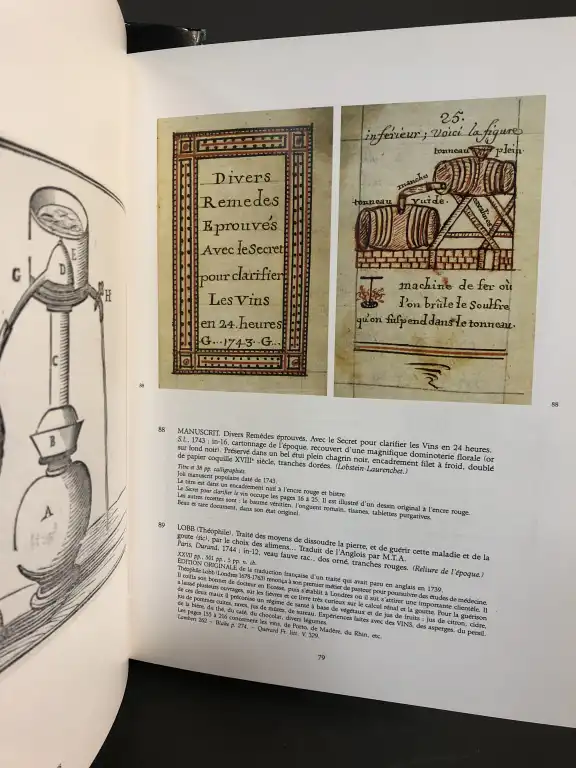 G
D
E
H
C
B
A
Divers
Remedes
Eprouvés
Avec le Secret
pour clarifier
Les Vins
en 24. heures
G...1743.G...
88
25.
inferieur ; Voici la figure
tonneau plein
manche
tonneau vuide.
machine de fer où
l'on brûle le Soulfre
qu'on suspend dans le tonneau.
88
88 MANUSCRIT. Divers Remèdes éprouvés. Avec le Secret pour clarifier les Vins en 24 heures.
S.l., 1743 ; in-16, cartonnage de l'époque, recouvert d'une magnifique dominoterie florale (or
sur fond noir). Préservé dans un bel étui plein chagrin noir, encadrement filet à froid, doublé
de papier coquille XVIIIe siècle, tranches dorées. (Lobstein-Laurenchet.)
Titre et 38 pp. calligraphiés.
Joli manuscrit populaire daté de 1743.
Le titre est dans un encadrement naïf à l'encre rouge et bistre.
Le Secret pour clarifier le vin occupe les pages 16 à 25. Il est illustré d'un dessin original à l'encre rouge.
Les autres recettes sont : le baume vénitien, l'onguent romain, tisanes, tablettes purgatives.
Beau et rare document, dans son état original.
89 LOBB (Théophile). Traité des moyens de dissoudre la pierre, et de guérir cette maladie et de la
goute (sic), par le choix des alimens... Traduit de l'Anglois par M.T.A.
Paris, Durand, 1744 ; in-12, veau fauve rac., dos orné, tranches rouges. (Reliure de l'époque.)
XXVII pp., 501 pp., 5 pp. n. ch.
ÉDITION ORIGINALE de la traduction française d'un traité qui avait paru en anglais en 1739.
Théophile Lobb (Londres 1678-1763) renonça à son premier métier de pasteur pour poursuivre des études de médecine.
Il coiffa son bonnet de docteur en Ecosse, puis s'établit à Londres où il sut s'attirer une importante clientèle. Il
a laissé plusieurs ouvrages, sur les fièvres et ce livre très curieux sur le calcul rénal et la goutte. Pour la guérison
de ces deux maux il préconise un régime de santé à base de végétaux et de jus de fruits : jus de citron, cidre,
jus de pommes cuites, raves, jus de mûres, de sureau. Expériences faites avec des VINS, des asperges, du persil,
de la bière, du thé, du café, du chocolat, divers légumes.
Les pages 155 à 216 concernent les vins, de Porto, de Madère, du Rhin, etc.
79